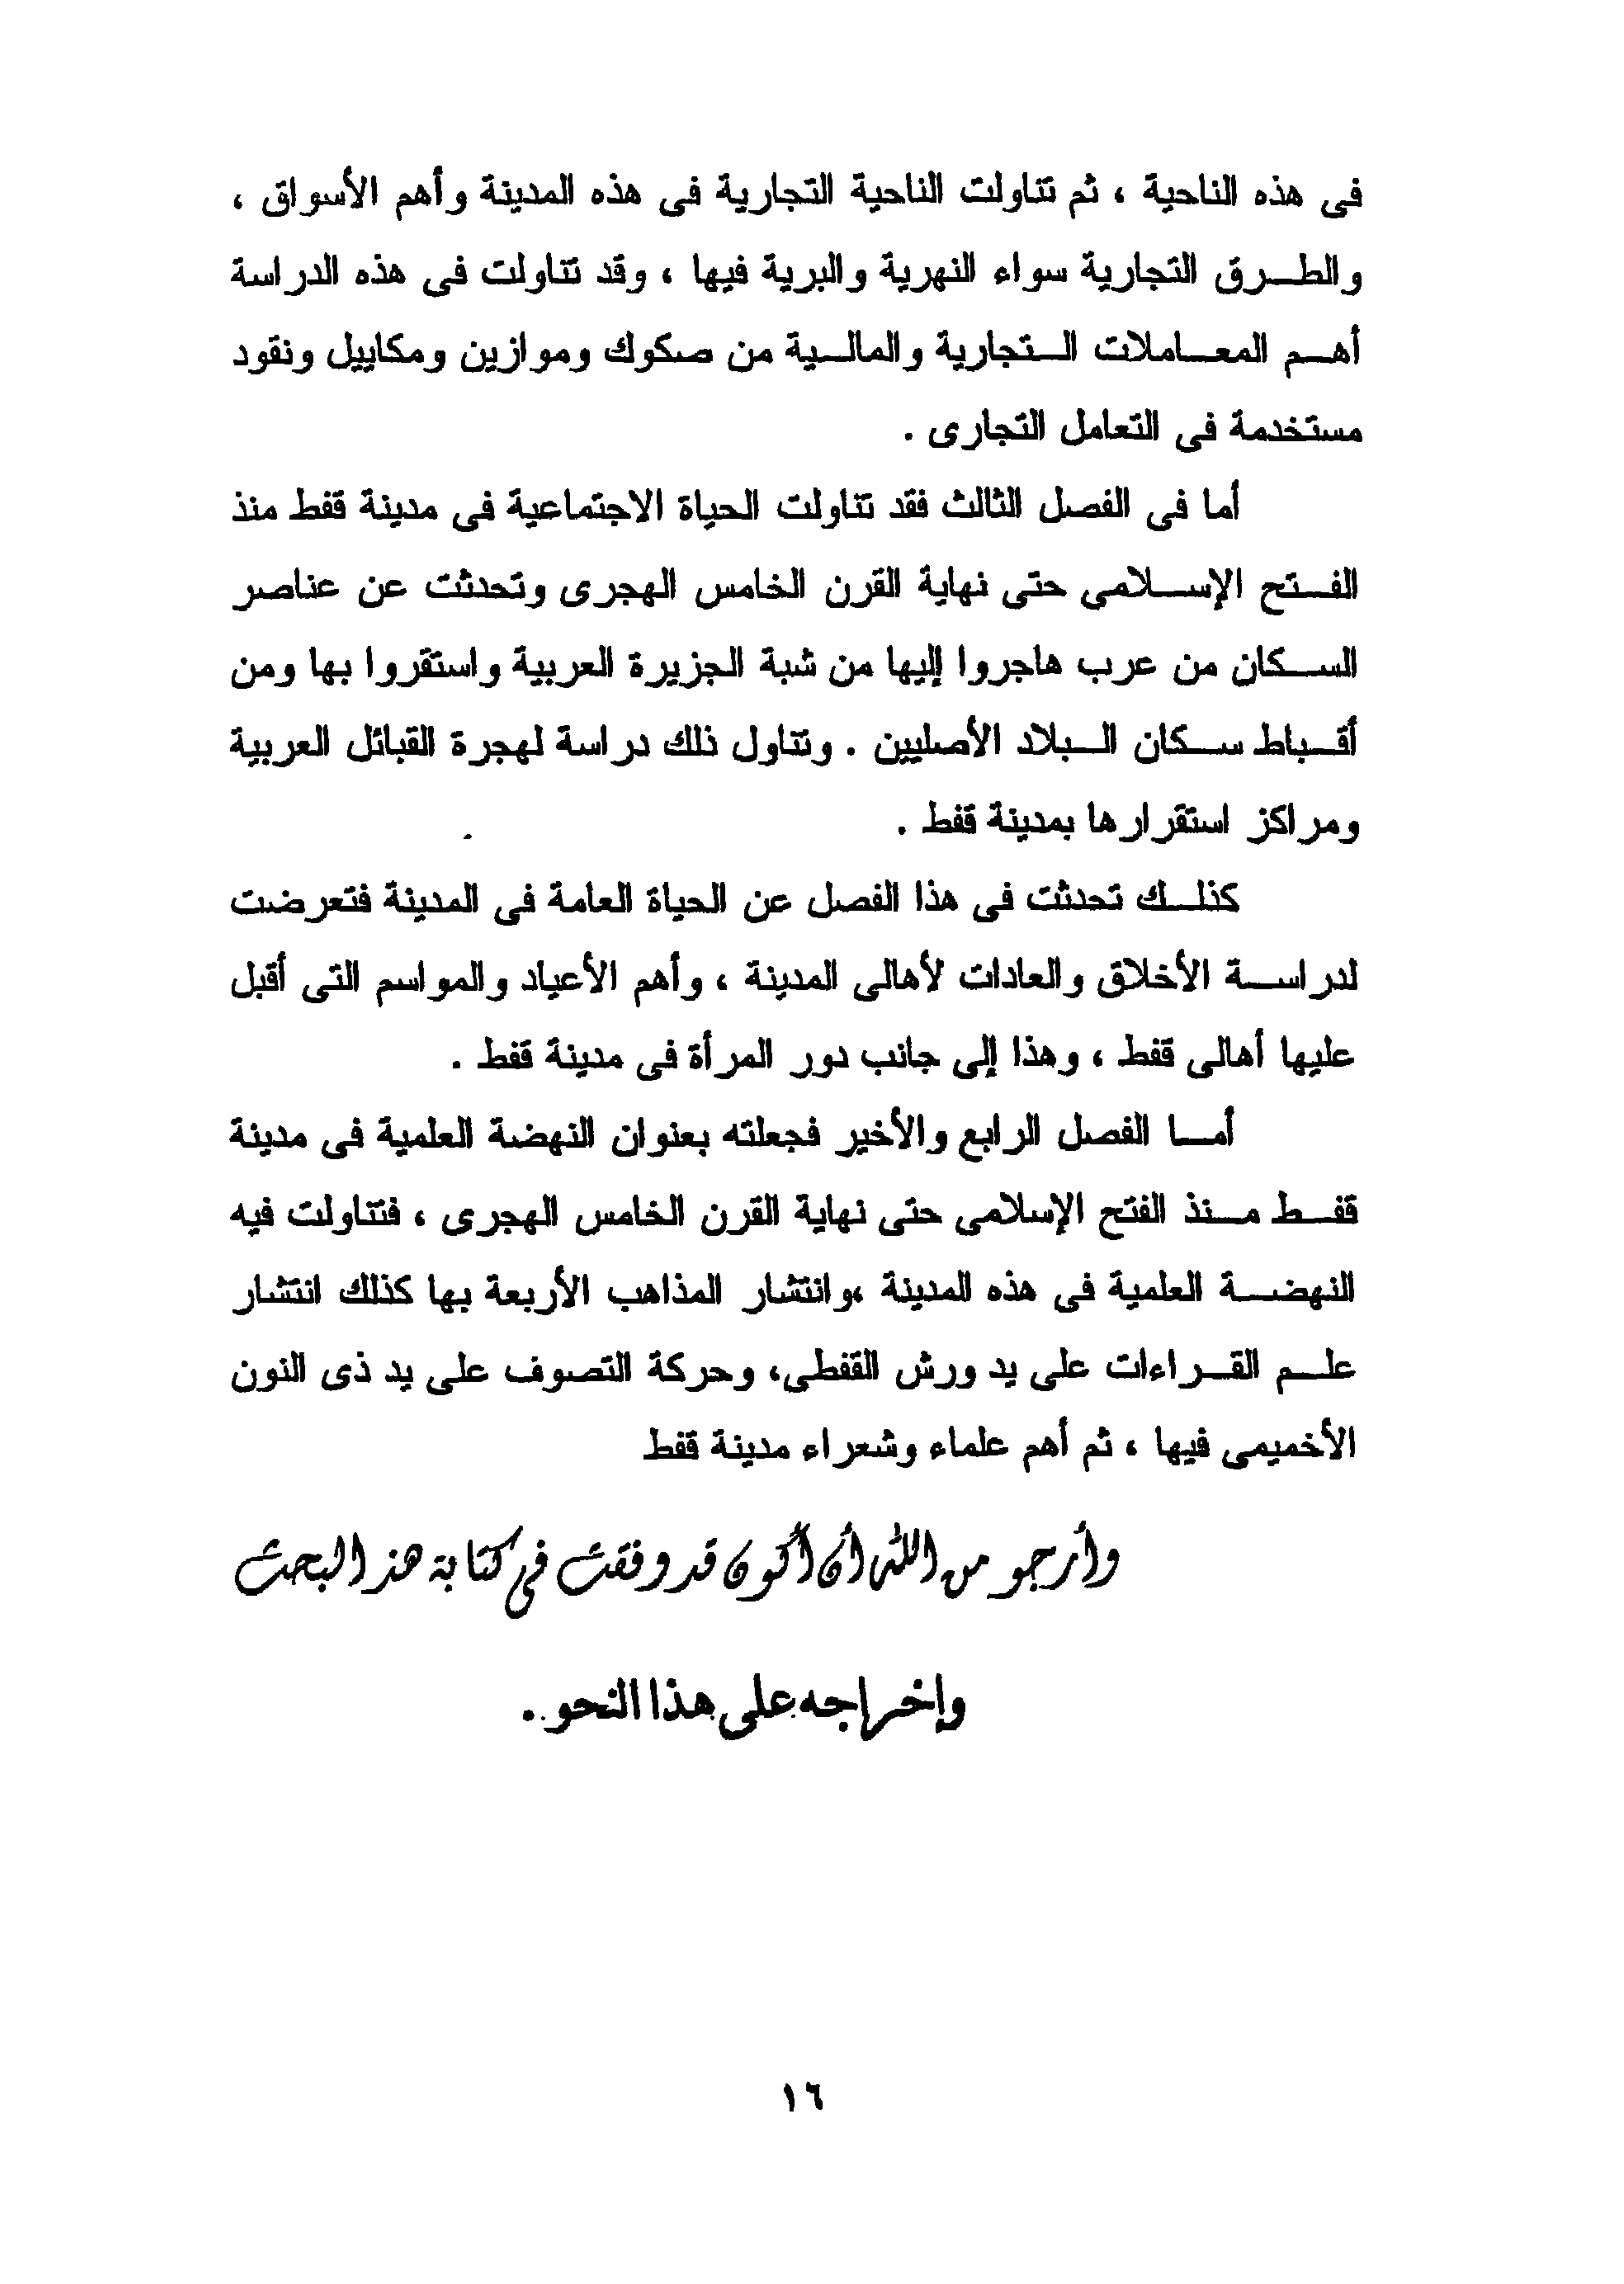 فى هذه الناحية ، ثم تناولت الناحية التجارية فى هذه المدينة وأهم الأسواق ،
والطـرق التجارية سواء النهرية والبرية فيها ، وقد تناولت فى هذه الدراسة
أهـم المعـاملات الـتجارية والمالـية من صكوك وموازين ومكاييل ونقود
مستخدمة فى التعامل التجارى .
أما فى الفصل الثالث فقد تناولت الحياة الاجتماعية فى مدينة قفط منذ
الفـتح الإسـلامى حتى نهاية القرن الخامس الهجرى وتحدثت عن عناصر
السـكان من عرب هاجروا إليها من شبة الجزيرة العربية واستقروا بها ومن
أقـباط سـكان الـبلاد الأصليين . ونتاول ذلك دراسة لهجرة القبائل العربية
ومراكز استقرارها بمدينة قفط .
كذلـك تحدثت فى هذا الفصل عن الحياة العامة فى المدينة فتعرضت
لدراسـة الأخلاق والعادات لأهالى المدينة ، وأهم الأعياد والمواسم التى أقبل
عليها أهالى قفط ، وهذا إلى جانب دور المرأة فى مدينة قفط .
أمـا الفصل الرابع والأخير فجعلته بعنوان النهضة العلمية فى مدينة
قفـط مـنذ الفتح الإسلامى حتى نهاية القرن الخامس الهجرى ، فتناولت فيه
النهضـة العلمية فى هذه المدينة ،وانتشار المذاهب الأربعة بها كذلك انتشار
علـم القـراءات على يد ورش القفطى، وحركة التصوف على يد ذى النون
الأخميمى فيها ، ثم أهم علماء وشعراء مدينة قفط
وأرجو من الله أن أكون قد وفقت فى كتابة هذا البحث
وإخراجه على هذا النحو .
١٦